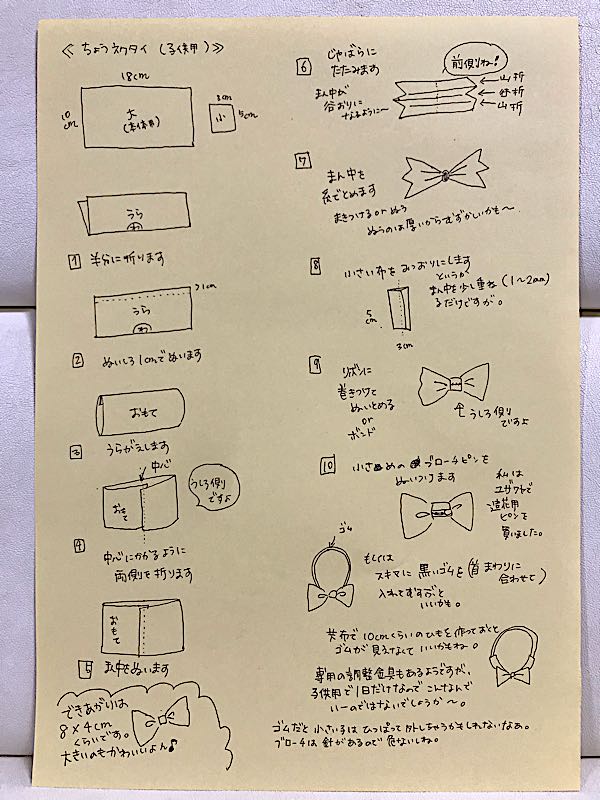 ≪ ちょうネクタイ (子供用) ≫
18cm
10cm
大
(本体用)
3cm
小
5cm
うら
わ
1 半分に折ります
1cm
うら
わ
2 ぬいしろ1cmでぬいます
おもて
3 うらがえします
中心
おもて
うしろ側
ですよ
4 中心にかかるように
両側を折ります
おもて
5 まん中をぬいます
できあがりは
8×4cm
くらいです。
大きいのもかわいいよん♪
6 じゃばらに
たたみます
まん中が
谷おりに
なるように〜
前側ね!
山折
谷折
山折
7 まん中を
糸でとめます
まきつけるorぬう
ぬうのは厚いからむずかしいかも〜
8 小さい布をみつおりにします
というか
まん中を少し重ね(1〜2mm)
るだけですが。
5cm
3cm
9 リボンに
巻きつけて
ぬいとめる
or
ボンド
うしろ側
ですよ
10 小さめのブローチピンを
ぬいつけます
私は
ユザワヤで
造花用
ピンを
買いました。
ゴム
もしくは
スキマに黒いゴムを(首まわりに
合わせて)
入れてむすぶと
いいかも。
共布で10cmくらいのひもを作っておくと
ゴムが見えなくていいかもね。
専用の調整金具もあるようですが、
子供用で1日だけなのでこんなんで
いーのではないでしょうか〜。
ゴムだと小さい子はひっぱって外しちゃうかもしれないなぁ。
ブローチは針があるので危ないしね。